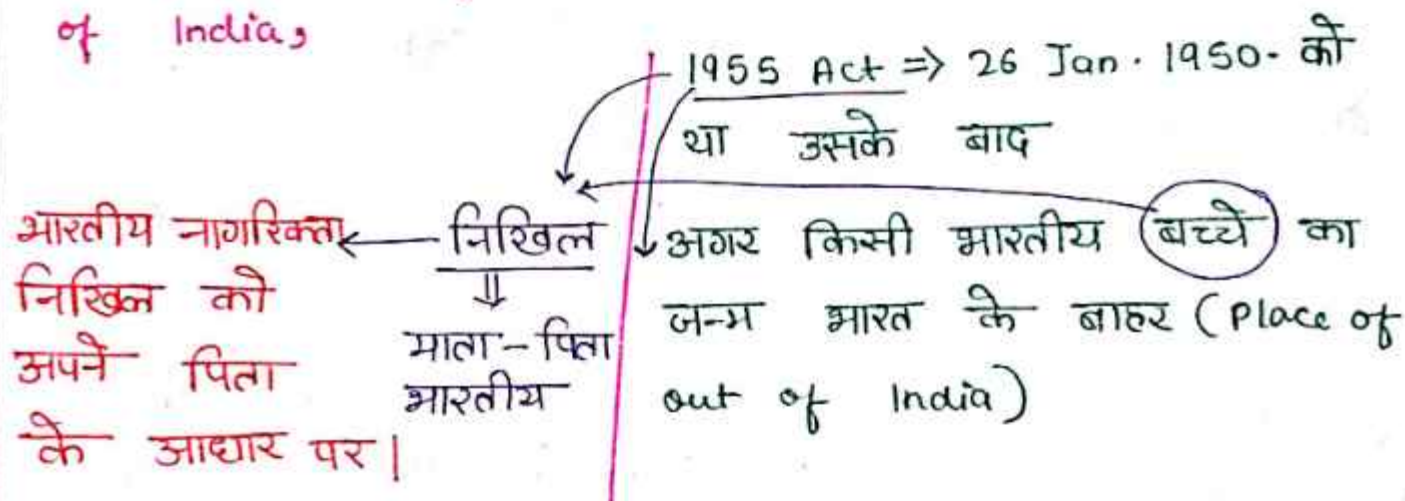 of India,
1955 Act => 26 Jan. 1950. को
था उसके बाद
अगर किसी भारतीय बच्चे का
जन्म भारत के बाहर (Place of
out of India)
निखिल
⇓
माता-पिता
भारतीय
भारतीय नागरिक्ता
निखिल को
अपने पिता
के आधार पर|